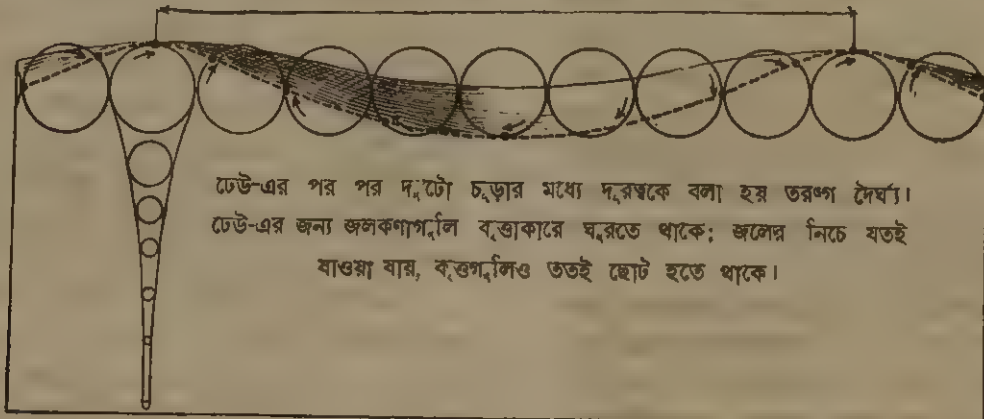 ঢেউ-এর পর পর দুটো চূড়ার মধ্যে দূরত্বকে বলা হয় তরঙ্গ দৈর্ঘ্য।
ঢেউ-এর জন্য জলকণাগুলি বৃত্তাকারে ঘুরতে থাকে; জলের নিচে যতই
যাওয়া যায়, বৃত্তগুলিও ততই ছোট হতে থাকে।